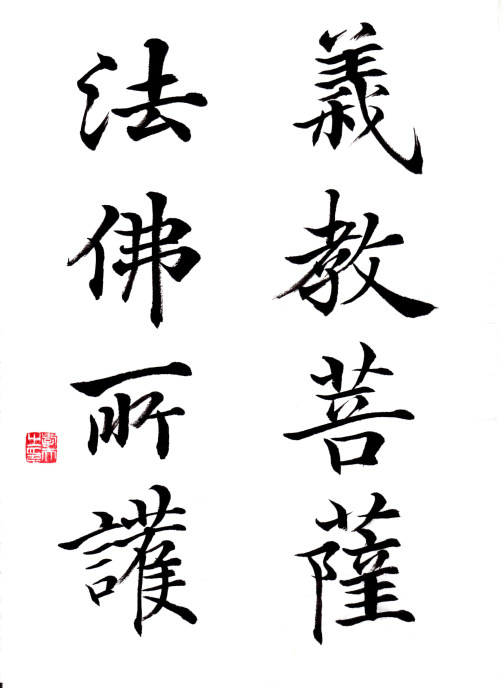 義教菩薩
法佛所護